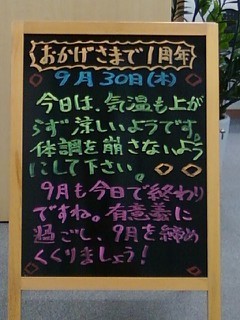 おかげさまで1周年
9月30日(木)
今日は、気温も上が
らず涼しいようです。
体調を崩さないよう
にして下さい。
9月も今日で終わり
ですね。有意義に
過ごし、9月を締め
くくりましょう!